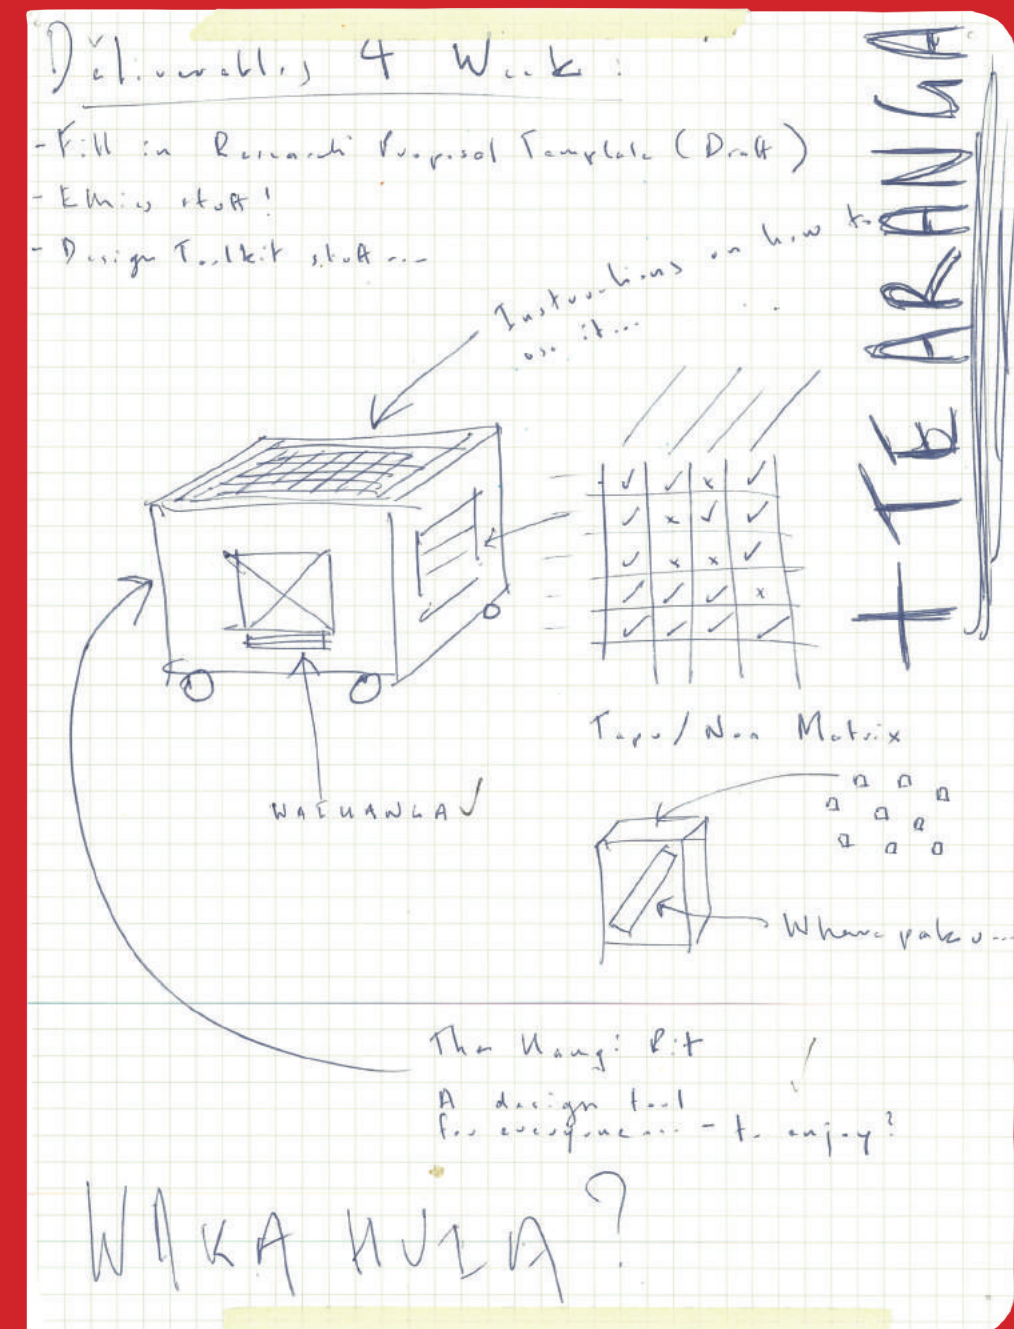 Deliverables 4 Week:
- Fill in Research Proposal Template (Draft)
- Ethics stuff!
- Design Toolkit stuff...
Instructions on how to
use it...
+ TE ARANGA
Tapu/Noa Matrix
WAIHANGA ✓
Wharepaku...
The Hangi Pit
A design tool
for everyone... - to enjoy?
WAKA HUIA?